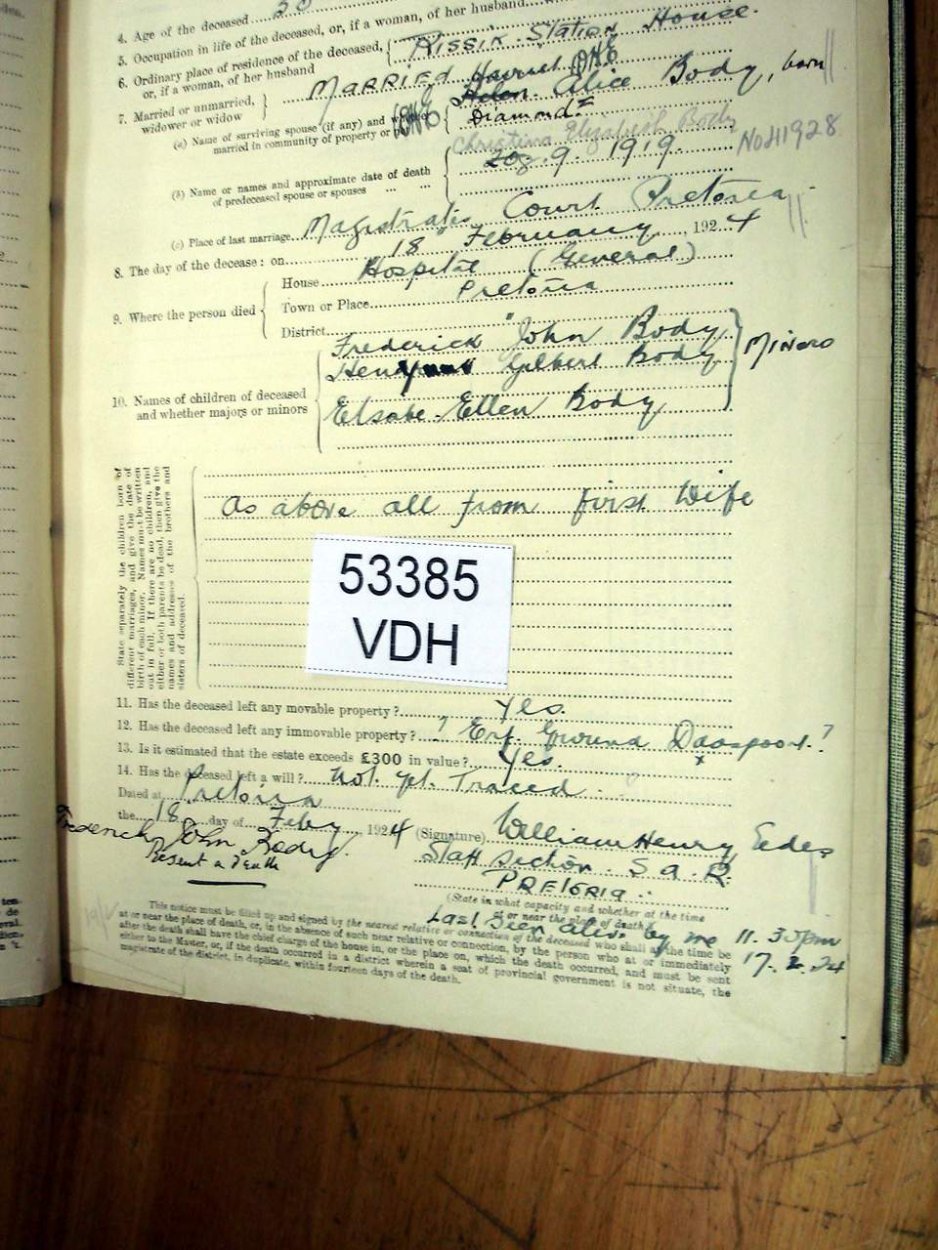 4. Age of the deceased
5. Occupation in life of the deceased, or, if a woman, of her husband
6. Ordinary place of residence of the deceased, or, if a woman, of her husband { Rissik Station House.
7. Married or unmarried, widower or widow } MARRIED Harriet
(a) Name of surviving spouse (if any) and married in community of property or Helen Alice Body, born
Diamond =
Christina Elizabeth Body No 41928
(b) Name or names and approximate date of death of predeceased spouse or spouses ... ... 9. 1919.
(c) Place of last marriage Magistrates Court Pretoria
8. The day of the decease: on 18" February, 1924
9. Where the person died { House Hospital (General)
Town or Place Pretoria
District "
10. Names of children of deceased and whether majors or minors { Frederick John Body
Henry Gilbert Body } Minors
Elsabe Ellen Body
State separately the children born of
different marriages, and give the date of
birth of each minor. Names must be written
out in full. If there are no children, and
either or both parents be dead, then give the
names and addresses of the brothers and
sisters of deceased.
As above all from first wife
53385
VDH
11. Has the deceased left any movable property? Yes.
12. Has the deceased left any immovable property? ? Erf. Ground Daaspoort. ?
13. Is it estimated that the estate exceeds £300 in value? Yes.
14. Has the deceased left a will? Not yet Traced.
Dated at Pretoria
the 18 day of Feby 1924 (Signature) William Henry Eedes
Frederick John Body.
Present at Death
Staff Section. S.A.R.
PRETORIA
(State in what capacity and whether at the time
or near the place of death)
Last Seen alive by me 11.30pm
17.2.24
This notice must be filled up and signed by the nearest relative or connection of the deceased who shall at the time be
at or near the place of death, or, in the absence of such near relative or connection, by the person who at or immediately
after the death shall have the chief charge of the house in, or the place on, which the death occurred, and must be sent
either to the Master, or, if the death occurred in a district wherein a seat of provincial government is not situate, the
magistrate of the district, in duplicate, within fourteen days of the death.